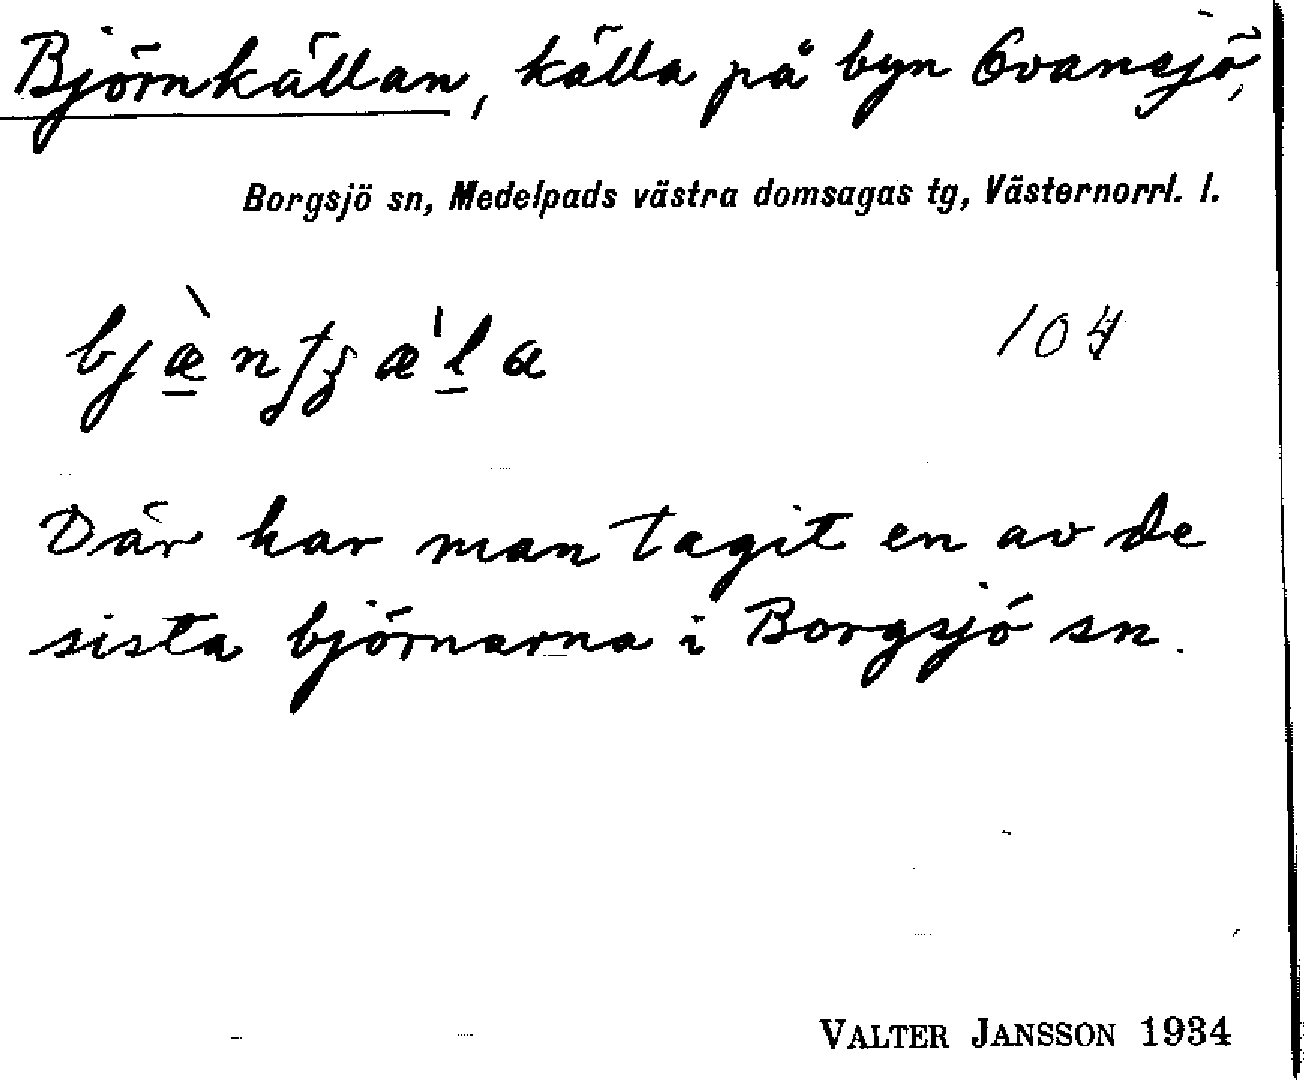 Björnkällan, källa på byn Ovansjö,
Borgsjö sn, Medelpads västra domsagas tg, Västernorrl. l.
104
Där har man tagit en av de
sista björnarna i Borgsjö sn.
VALTER JANSSON 1934